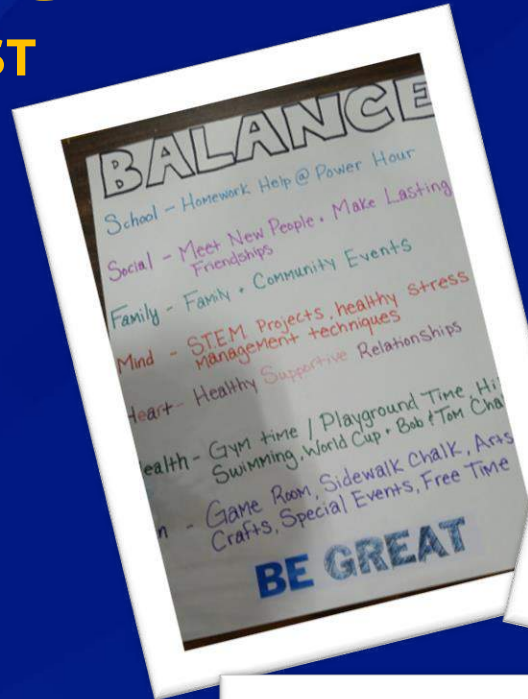 ST
BALANCE
School - Homework Help @ Power Hour
Social - Meet New People • Make Lasting
Friendships
Family - Family + Community Events
Mind - STEM Projects, healthy stress
management techniques
Heart - Healthy Supportive Relationships
ealth - Gym time / Playground Time, Hi
Swimming, World Cup • Bob & Tom Cha
n - Game Room, Sidewalk Chalk, Arts
Crafts, Special Events, Free Time
BE GREAT